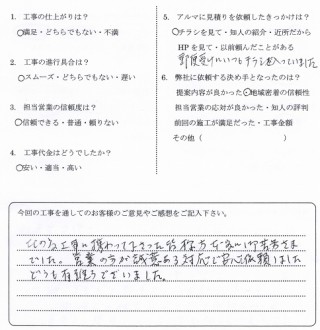 1. 工事の仕上がりは？
○満足・どちらでもない・不満
2. 工事の進行具合は？
○スムーズ・どちらでもない・遅い
3. 担当営業の信頼度は？
○信頼できる・普通・頼りない
4. 工事代金はどうでしたか？
○安い・適当・高い
5. アルマに見積りを依頼したきっかけは？
○チラシを見て・知人の紹介・近所だから
HPを見て・以前頼んだことがある
郵便受けにいつもチラシが入っていました
6. 弊社に依頼する決め手となったのは？
提案内容が良かった・○地域密着の信頼性
担当営業の応対が良かった・知人の評判
前回の施工が満足だった・工事金額
その他（　　　　　　　　　）
今回の工事を通してのお客様のご意見やご感想をご記入下さい。
工事に携わって下さった皆様方
でした。営業の方が誠意ある対応で安心依頼しました
どうも有難うございました。